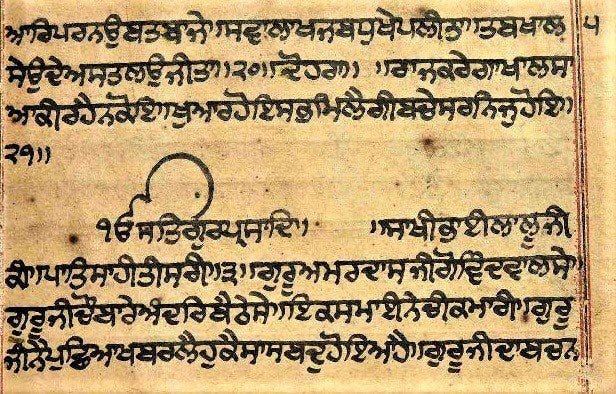 ਆਰਿਪਰਨਉਬਤਬਾਜੇ॥ਸਵਾਲਾਖਜਬਧੁਖੇਪਲੀਤਾ॥ਤਬਖਾਲ ੫
ਸੇਉਦੇਅਸਤਲਉਜੀਤਾ॥੨੦॥ਦੋਹਰਾ॥ ॥ਰਾਜਕਰੇਗਾਖਾਲਸਾ
ਆਕੀਰਹੈਨਕੋਇ॥ਖੁਆਰਹੋਇਸਭਮਿਲੈਗੀਬਚੇਸਰਨਿਜੁਹੋਇ॥
੨੧॥
ੴਸਤਿਗੁਰਪ੍ਰਸਾਦਿ॥ ॥ਸਾਖੀਭਾਈਲਾਲੂਜੀ
ਕੀ॥ਪਾਤਿਸਾਹੀਤੀਸਰੀ॥੩॥ਗੁਰੂਅਮਰਦਾਸਜੀਗੋਵਿੰਦਵਾਲਸੇ॥
ਗੁਰੂਜੀਚੌਬਾਰੇਅੰਦਰਿਬੈਠੇਸੇ॥ਇਕਸਮਾਈਨੇਚੀਕਮਾਰੀ॥ਗੁਰੂ
ਜੀਨੇਪੁਛਿਆਖਬਰਲੈਹੁਕੈਸਾਸਬਦੁਹੋਇਅਹੈ॥ਗੁਰੂਜੀਦਾਬਚਨ